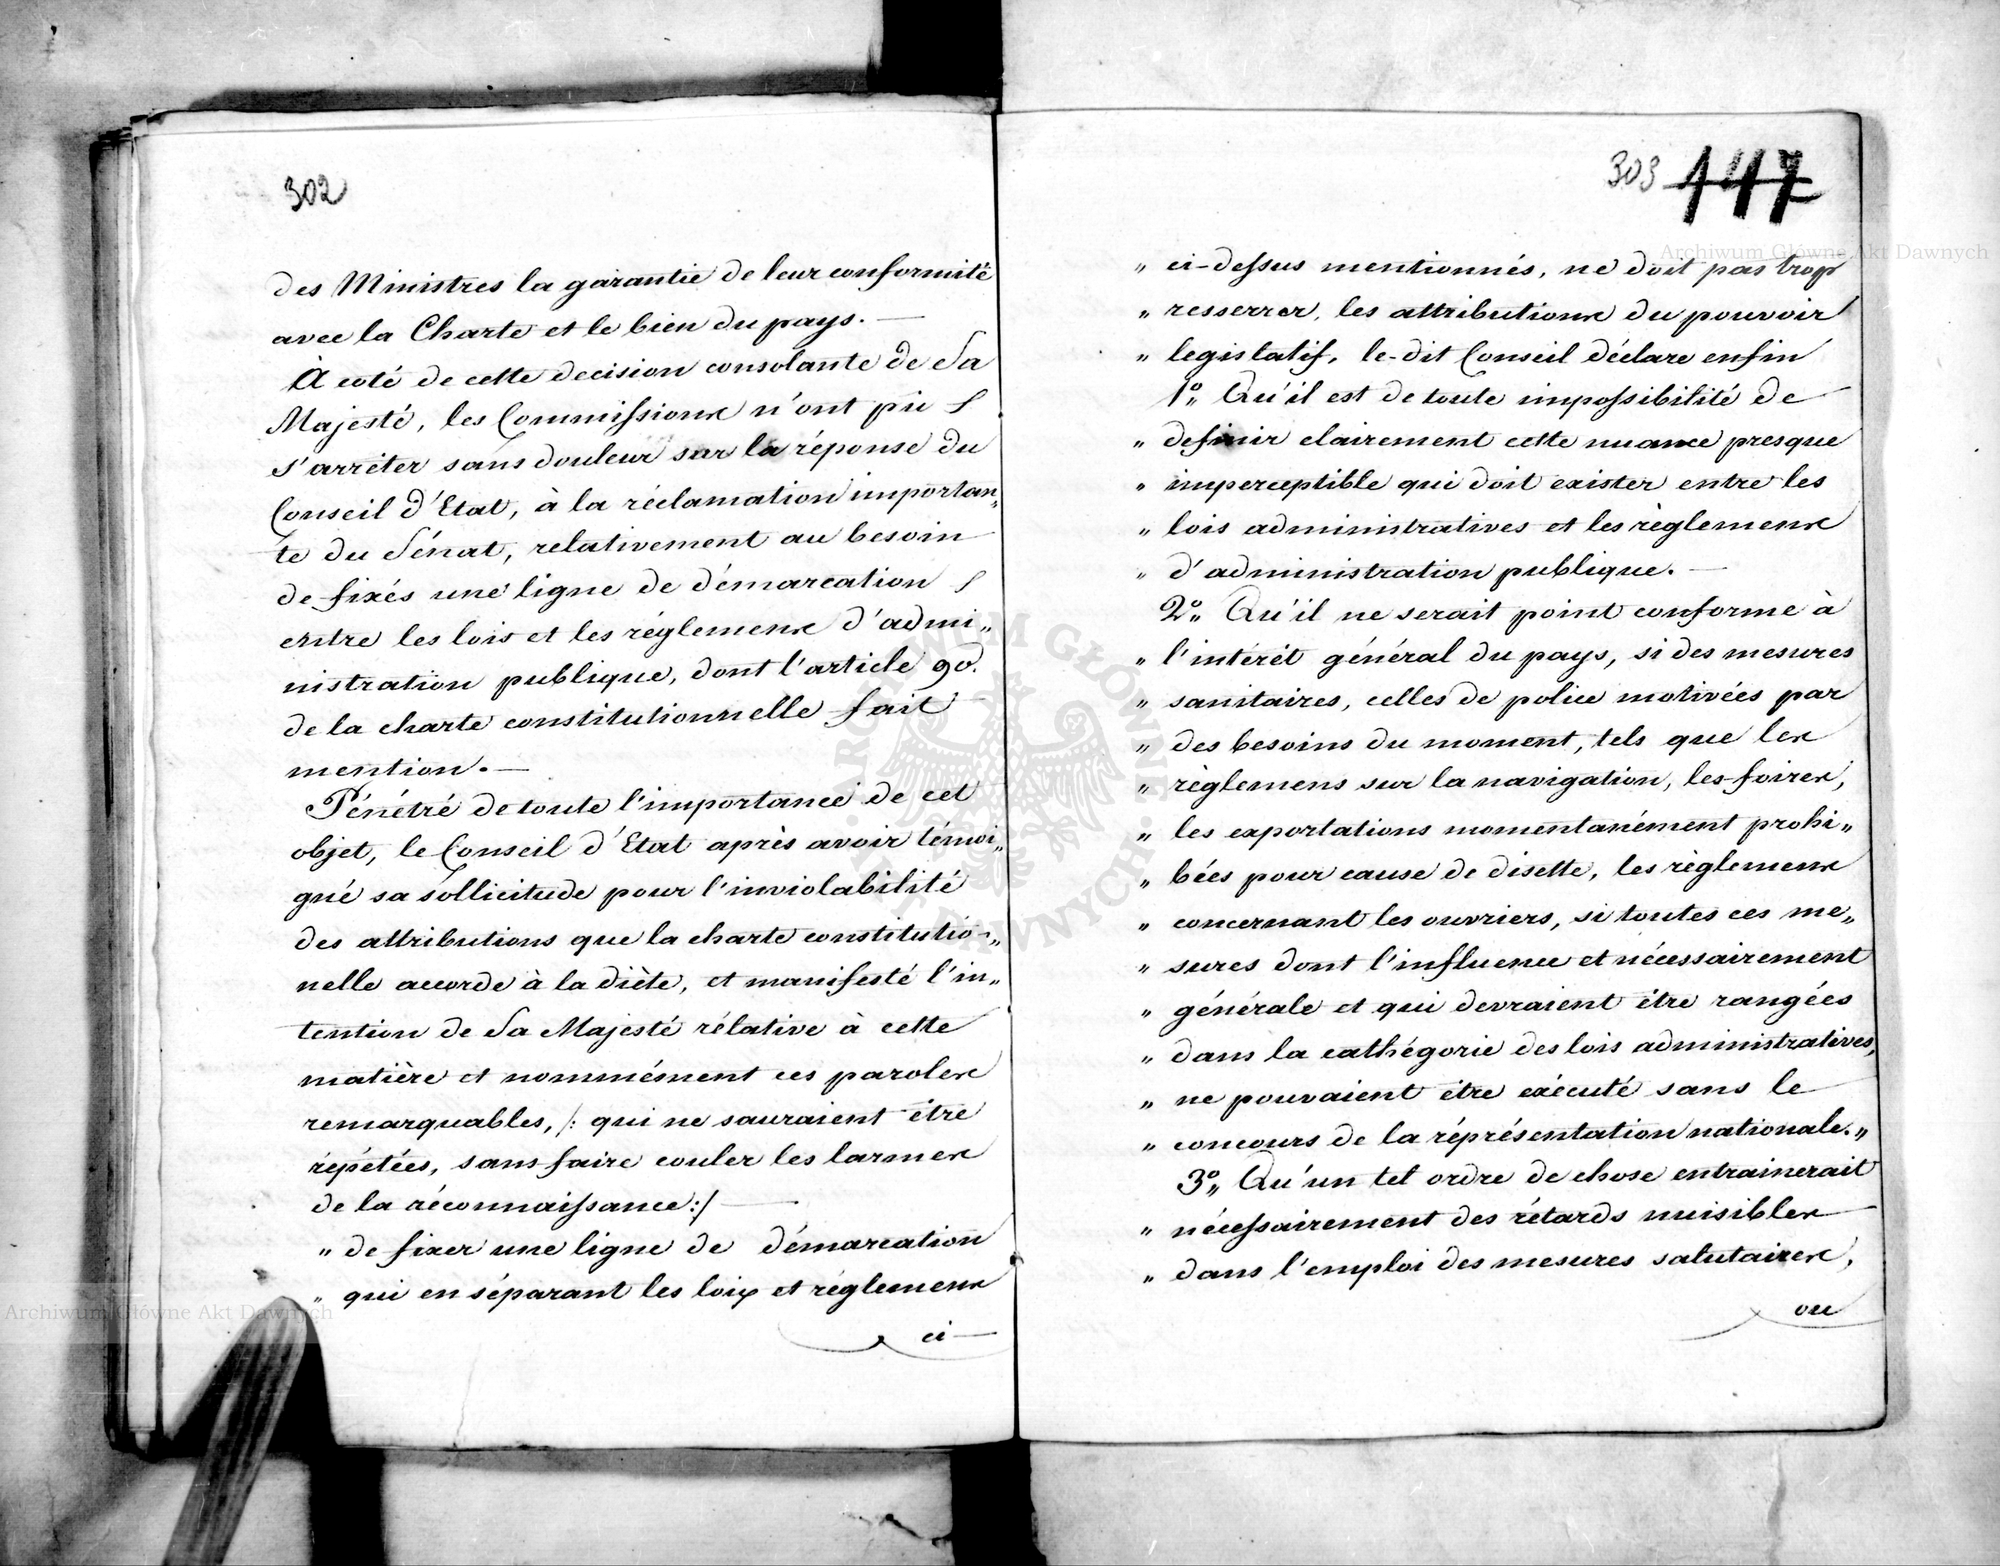 302
des Ministres la garantie de leur conformité
avec la Charte et le bien du pays. —
A coté de cette decision consolante de Sa
Majesté, les Commissions n'ont pu
s'arrêter sans douleur sur la réponse du
Conseil d'Etat, à la réclamation importan„
te du Sénat, relativement au besoin
de fixés une ligne de démarcation
entre les lois et les réglemens d'admi„
nistration publique, dont l'article 90.
de la charte constitutionnelle fait
mention. —
Pénétré de toute l'importance de cet
objet, le Conseil d'Etat après avoir témoi„
gné sa sollicitude pour l'inviolabilité
des attributions que la charte constitutio-„
nelle accorde à la diète, et manifesté l'in„
tention de Sa Majesté rélative à cette
matière et nommément ces paroles
remarquables, /: qui ne sauraient être
répetées, sans faire couler les larmes
de la réconnaissance :/ —
„ de fixer une ligne de démarcation
„ qui en séparant les loix et réglemens
ci —
303 147
„ ci-dessus mentionnés, ne doit pas trop
„ resserrer, les attributions du pouvoir
„ legislatif, le-dit Conseil déclare enfin
1º„ Qu'il est de toute impossibilité de
„ definir clairement cette nuance presque
„ imperceptible qui doit exister entre les
„ lois administratives et les règlemens
„ d'administration publique. —
2º„ Qu'il ne serait point conforme à
„ l'intérêt général du pays, si des mesures
„ sanitaires, celles de police motivées par
„ des besoins du moment, tels que les
„ règlemens sur la navigation, les foires,
„ les exportations momentanément prohi„
„ bées pour cause de disette, les règlemens
„ concernant les ouvriers, si toutes ces me„
„ sures dont l'influence et nécessairement
„ générale et qui devraient être rangées
„ dans la cathégorie des lois administratives,
„ ne pouvaient être exécuté sans le
„ concours de la réprésentation nationale.„
3º„ Qu'un tel ordre de chose entrainerait
„ nécessairement des rétards nuisibles
„ dans l'emploi des mesures salutaires,
ou
Archiwum Główne Akt Dawnych
Archiwum Główne Akt Dawnych